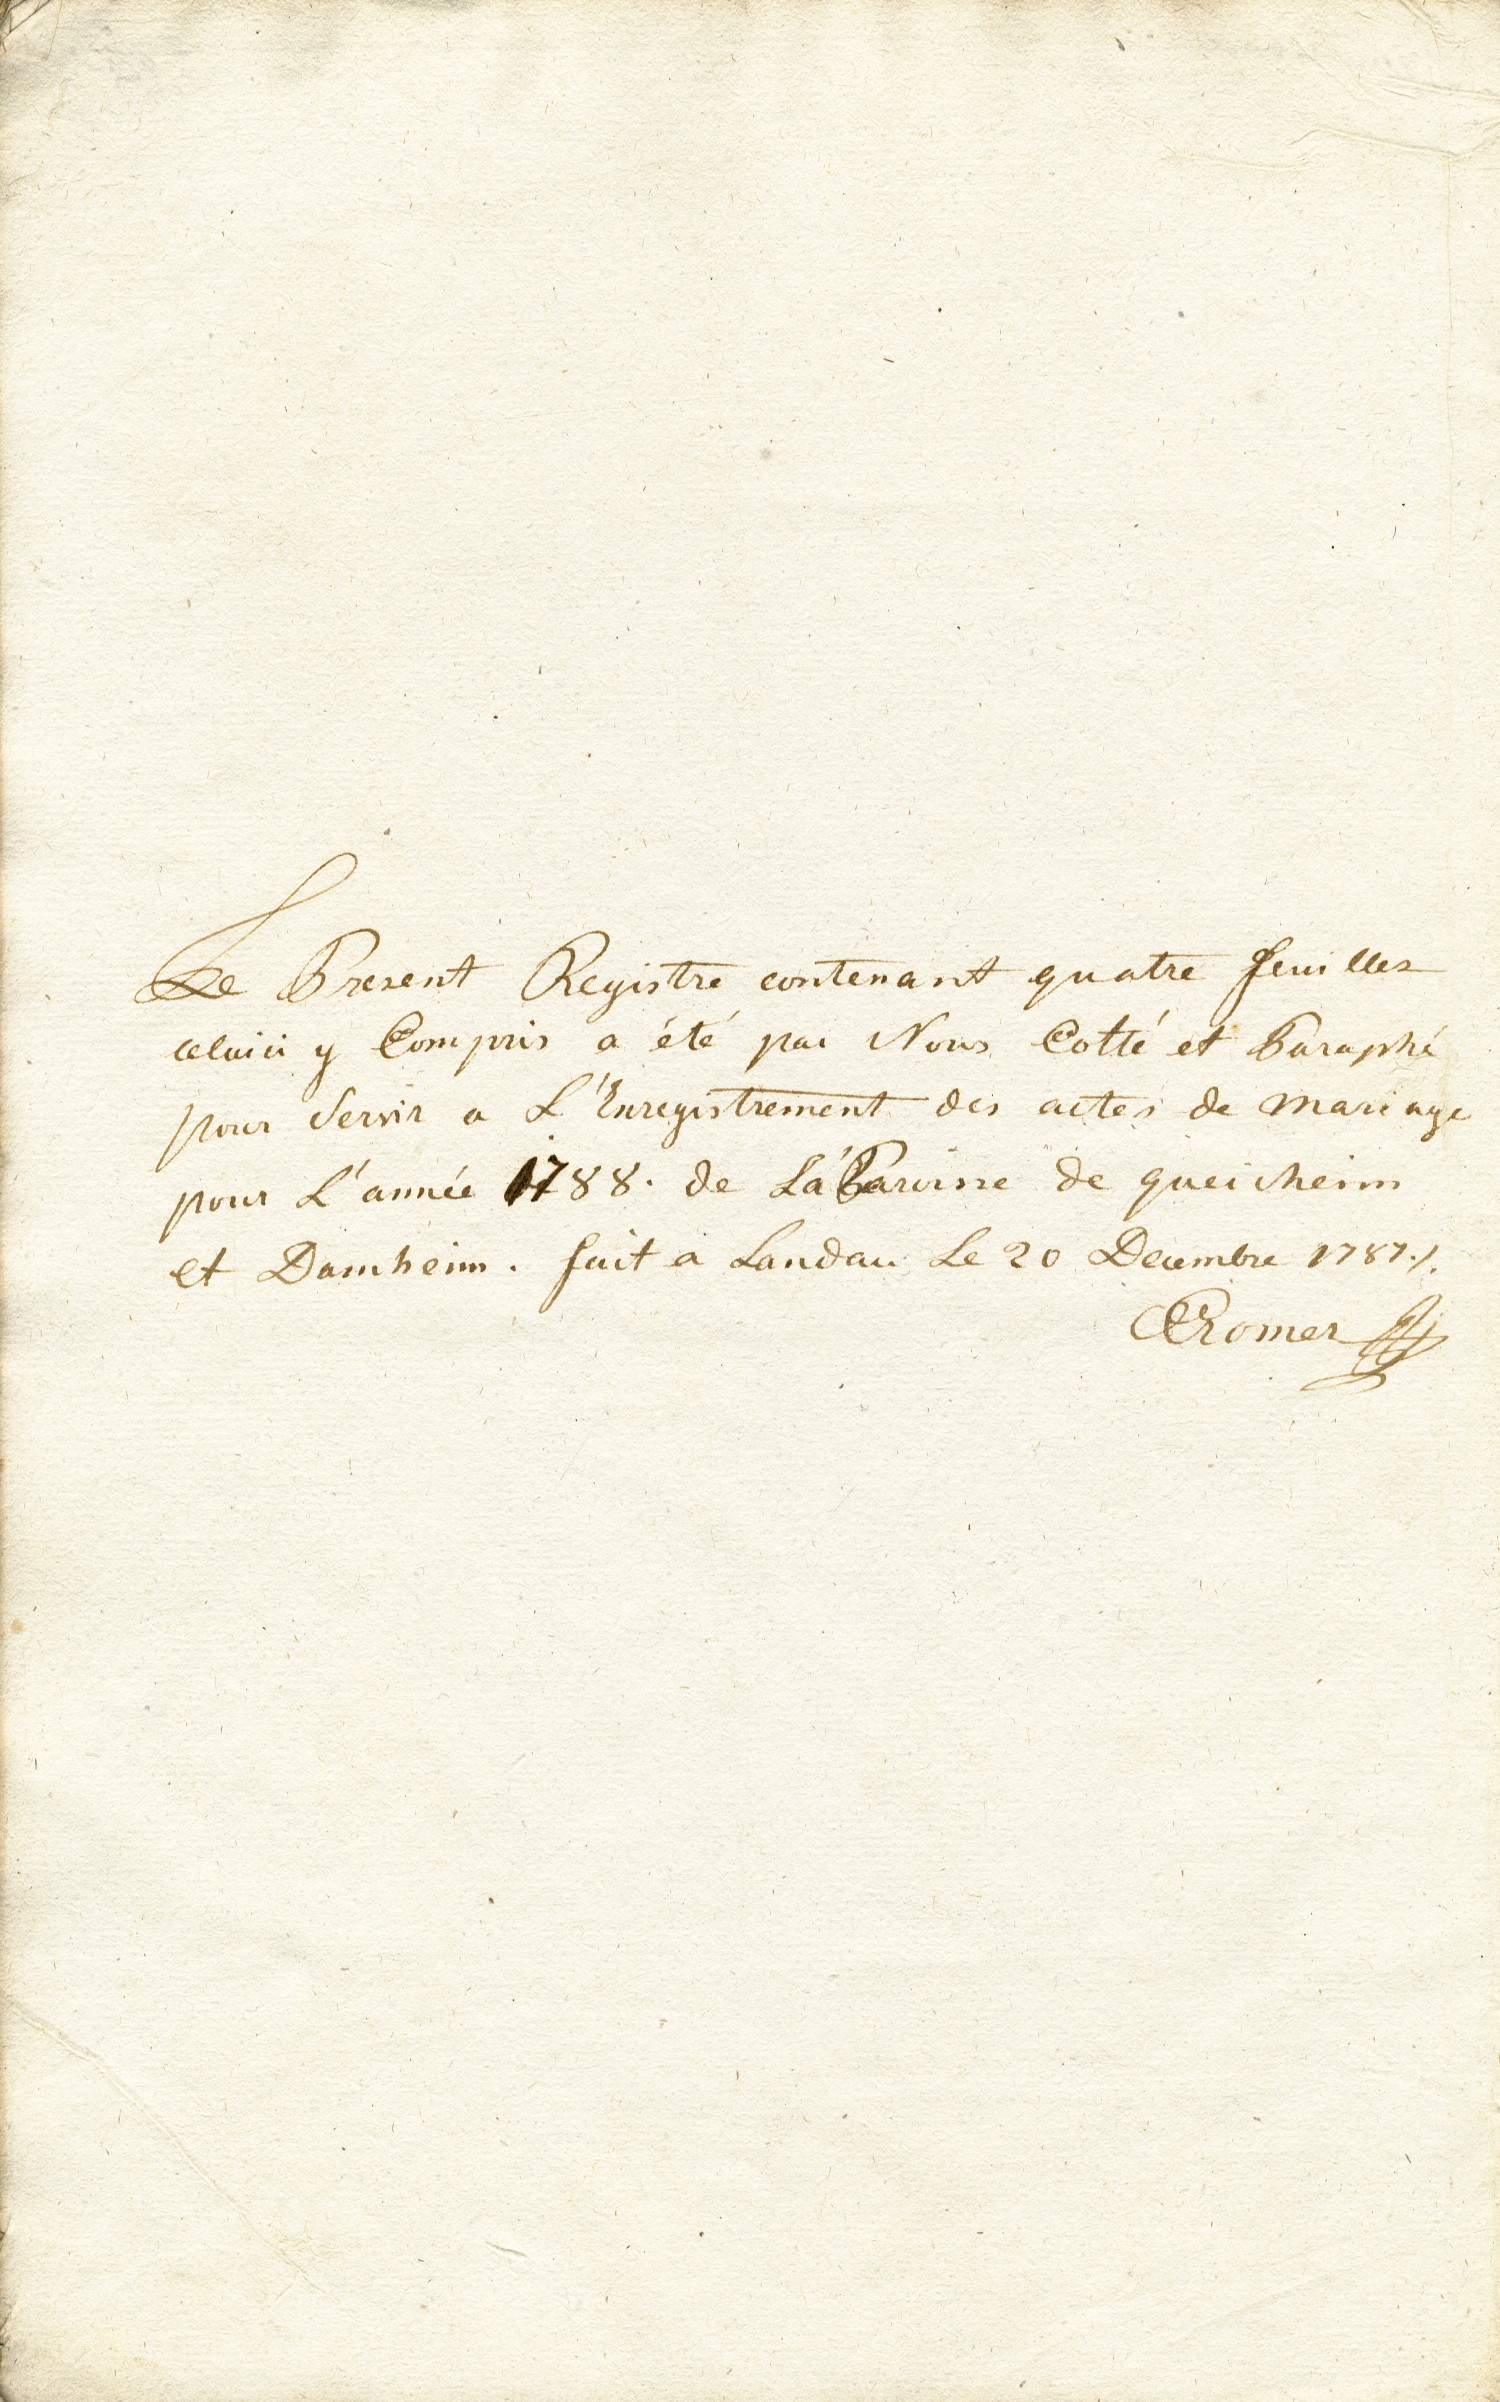 Le Present Registre contenant quatre feuilles
celuici y Compris a été par Nous Cotté et Paraphé
pour Servir a L'Enregistrement des actes de mariage
pour L'année 1788. de La Paroisse de queicheim
et Damheim. fait a Landau Le 20 Decembre 1787./.
Romer